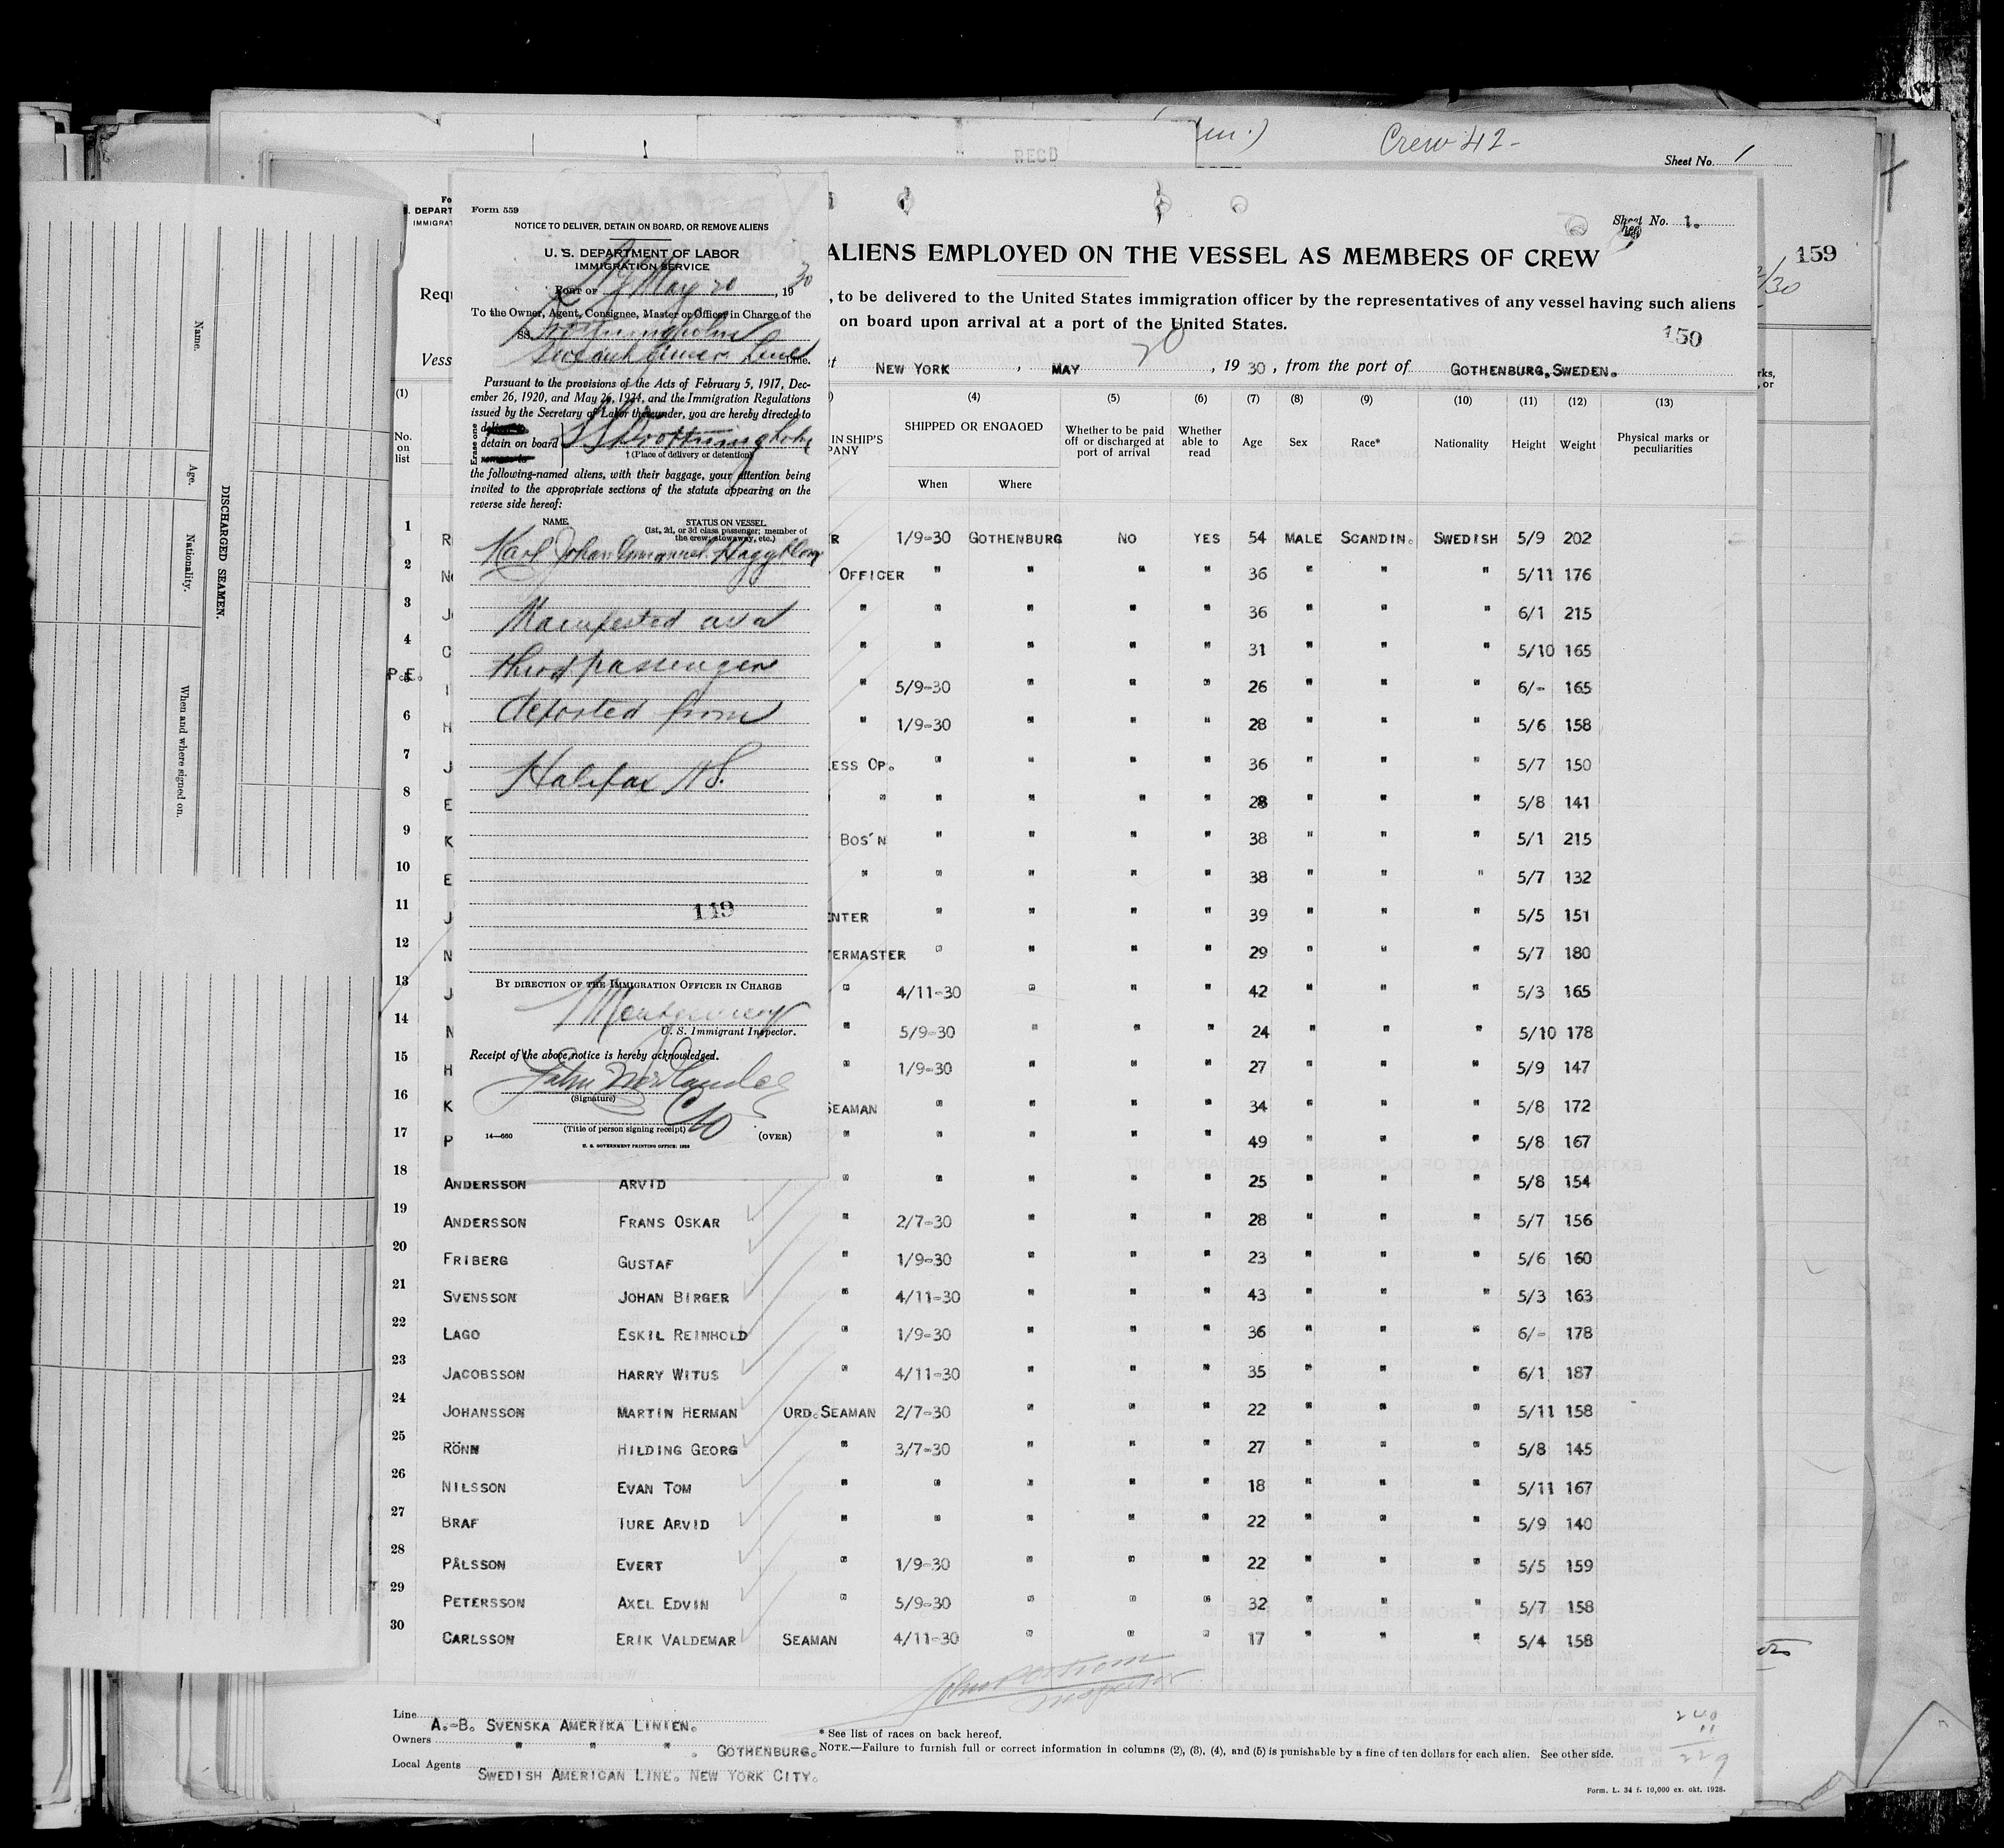 (m.) Crew 42-
RECD
Sheet No. 1
Form 559
NOTICE TO DELIVER, DETAIN ON BOARD, OR REMOVE ALIENS
U. S. DEPARTMENT OF LABOR
IMMIGRATION SERVICE
Port of NY May 20, 1930
To the Owner, Agent, Consignee, Master or Officer in Charge of the
SS. Drottningholm
Swedish Amer Line Line.
Pursuant to the provisions of the Acts of February 5, 1917, Dec-
ember 26, 1920, and May 26, 1924, and the Immigration Regulations
issued by the Secretary of Labor thereunder, you are hereby directed to
Erase one
detain on board SS Drottningholm
† (Place of delivery or detention)
the following-named aliens, with their baggage, your attention being
invited to the appropriate sections of the statute appearing on the
reverse side hereof:
NAME STATUS ON VESSEL
(1st, 2d, or 3d class passenger; member of
the crew; stowaway, etc.)
Karl Johan Emanuel Haggblom
Manifested as a
third passenger
deported from
Halifax N S.
149
BY DIRECTION OF THE IMMIGRATION OFFICER IN CHARGE
U. S. Immigrant Inspector.
Receipt of the above notice is hereby acknowledged.
John
(Signature)
(Title of person signing receipt)
14—660 (OVER)
U. S. GOVERNMENT PRINTING OFFICE: 1928
Name. Age. Nationality. When and where signed on.
DISCHARGED SEAMEN.
Sheet No. 1.
ALIENS EMPLOYED ON THE VESSEL AS MEMBERS OF CREW
159
, to be delivered to the United States immigration officer by the representatives of any vessel having such aliens
on board upon arrival at a port of the United States.
150
NEW YORK, MAY 20, 1930, from the port of GOTHENBURG, SWEDEN.
(1) (4) (5) (6) (7) (8) (9) (10) (11) (12) (13)
No. on list
IN SHIP'S
SHIPPED OR ENGAGED
When Where
Whether to be paid off or discharged at port of arrival
Whether able to read
Age Sex Race* Nationality Height Weight
Physical marks or peculiarities
1 R R 1/9-30 GOTHENBURG NO YES 54 MALE SCANDIN. SWEDISH 5/9 202
2 N OFFICER " " " " 36 " " " 5/11 176
3 J " " " " " 36 " " " 6/1 215
4 C " " " " " 31 " " " 5/10 165
P.E. 5 I " 5/9-30 " " " 26 " " " 6/- 165
6 H " 1/9-30 " " " 28 " " " 5/6 158
7 J ESS OP. " " " " 36 " " " 5/7 150
8 E " " " " " 28 " " " 5/8 141
9 K BOS'N " " " " 38 " " " 5/1 215
10 E " " " " " 38 " " " 5/7 132
11 J NTER " " " " 39 " " " 5/5 151
12 N ERMASTER " " " " 29 " " " 5/7 180
13 J " 4/11-30 " " " 42 " " " 5/3 165
14 N " 5/9-30 " " " 24 " " " 5/10 178
15 H " 1/9-30 " " " 27 " " " 5/9 147
16 K SEAMAN " " " " 34 " " " 5/8 172
17 P " " " " " 49 " " " 5/8 167
18 ANDERSSON ARVID " " " " " 25 " " " 5/8 154
19 ANDERSSON FRANS OSKAR " 2/7-30 " " " 28 " " " 5/7 156
20 FRIBERG GUSTAF " 1/9-30 " " " 23 " " " 5/6 160
21 SVENSSON JOHAN BIRGER " 4/11-30 " " " 43 " " " 5/3 163
22 LAGO ESKIL REINHOLD " 1/9-30 " " " 36 " " " 6/- 178
23 JACOBSSON HARRY WITUS " 4/11-30 " " " 35 " " " 6/1 187
24 JOHANSSON MARTIN HERMAN ORD.SEAMAN 2/7-30 " " " 22 " " " 5/11 158
25 RÖNN HILDING GEORG " 3/7-30 " " " 27 " " " 5/8 145
26 NILSSON EVAN TOM " " " " " 18 " " " 5/11 167
27 BRAF TURE ARVID " " " " " 22 " " " 5/9 140
28 PÅLSSON EVERT " 1/9-30 " " " 22 " " " 5/5 159
29 PETERSSON AXEL EDVIN " 5/9-30 " " " 32 " " " 5/7 158
30 CARLSSON ERIK VALDEMAR SEAMAN 4/11-30 " " " 17 " " " 5/4 158
Line A.-B. SVENSKA AMERIKA LINIEN.
Owners " " " . GOTHENBURG.
Local Agents SWEDISH AMERICAN LINE. NEW YORK CITY.
* See list of races on back hereof.
NOTE.—Failure to furnish full or correct information in columns (2), (3), (4), and (5) is punishable by a fine of ten dollars for each alien. See other side.
240
11
229
Form. L. 34 f. 10,000 ex. okt. 1928.